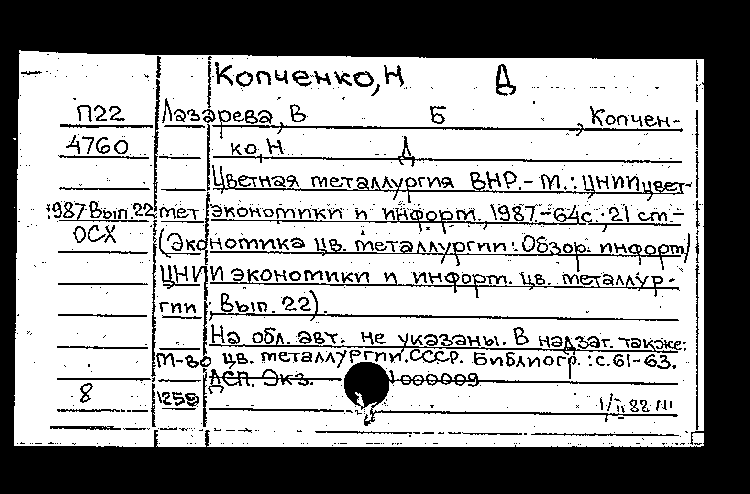 Копченко, Н Д
П22 Лазарева, В Б , Копчен-
4760 ко, Н Д
Цветная металлургия ВНР.- М.: ЦНИИцвет-
1987 Вып.22 мет экономики и информ., 1987.-64с.; 21 см.-
ОСХ (Экономика цв. металлургии: Обзор. информ/
ЦНИИ экономики и информ. цв. металлур-
гии; Вып. 22).
На обл. авт. не указаны. В надзаг. также:
М-во цв. металлургии СССР. Библиогр.: с.61-63.
ДСП. Экз. 000009
8 1255
1/II 88